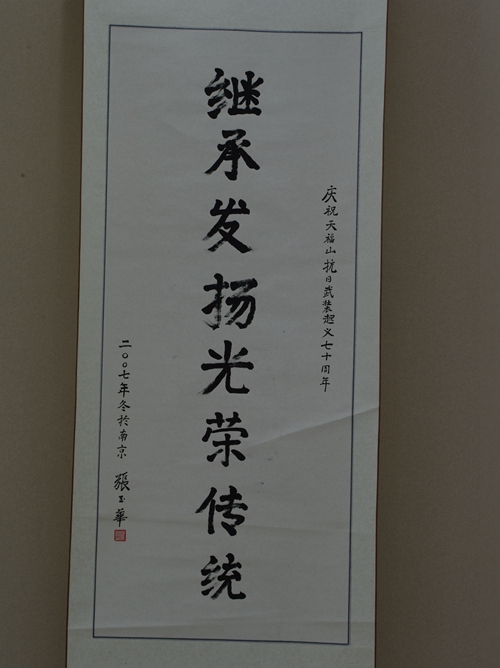 庆祝天福山抗日武装起义七十周年
继承发扬光荣传统
二〇〇七年冬於南京 張玉華